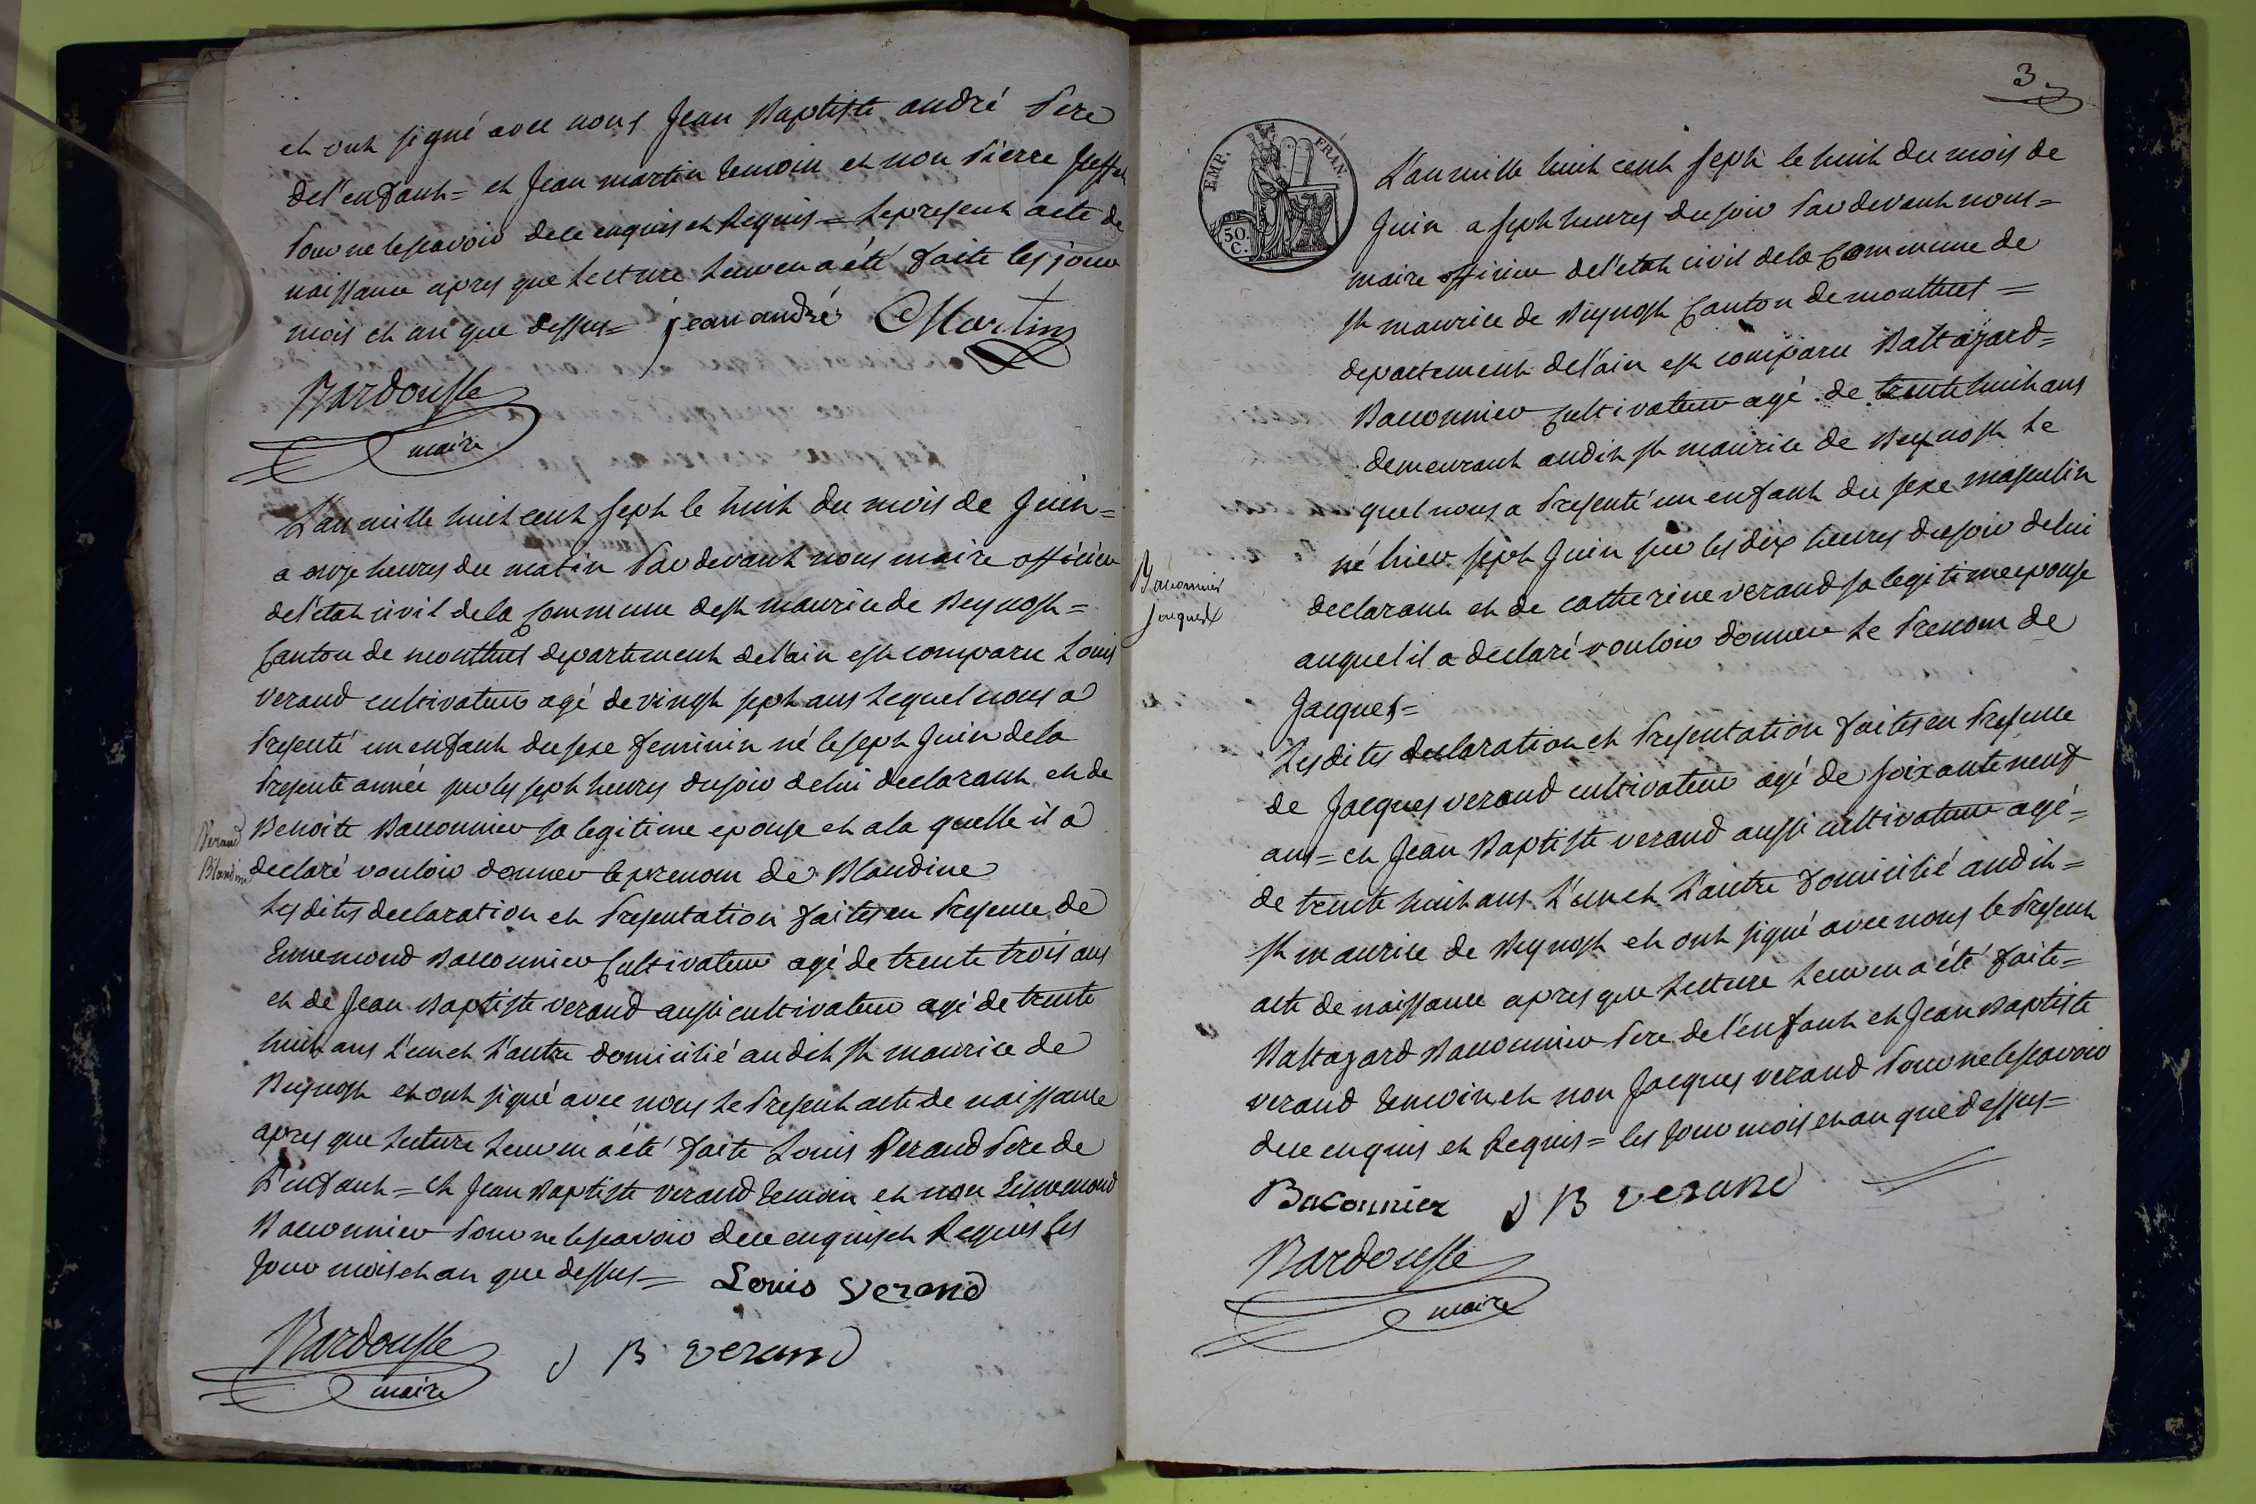 et ont signé avec nous Jean Baptiste andré Pere
de l'enfant = et Jean martin temoin et non Pierre
Pour ne le scavoir de ce enquis et Requis = Le present acte de
naissance apres que Lecture Leur en a été faite les jour
mois et an que dessus = jean andré Martin
Bardousse
maire
L'an mille huit cent sept le huit du mois de Juin =
a onze heures du matin Par devant nous maire officier
de l'etat civil de la Commune de st maurice de Beynost =
Canton de montluel departement de l'ain est comparu Louis
verand cultivateur agé de vingt sept ans Lequel nous a
Presenté un enfant du sexe feminin né le sept Juin de la
Presente année sur les sept heures du soir de lui declarant et de
Verand
Blandine
Benoite Bacconnier sa legitime epouse et a la quelle il a
declaré vouloir donner le prenom de Blandine
Les dites declaration et Presentation faites en Presence de
Ennemond Bacconnier Cultivateur agé de trente trois ans
et de Jean Baptiste verand aussi cultivateur agé de trente
huit ans L'un et L'autre domicilié au dit st maurice de
Beynost et ont signé avec nous Le Present acte de naissance
apres que Lecture Leur en a été faite Louis Verand Pere de
L'enfant = et Jean Baptiste verand temoin et non Ennemond
Bacconnier Pour ne le scavoir de ce enquis et Requis Les
Jour mois et an que dessus = Louis verand
Bardousse
maire
J B verand
3
EMP. FRAN.
50
C.
L'an mille huit cent sept le huit du mois de
Juin a sept heures du soir Par devant nous =
maire officier de l'etat civil de la Commune de
st maurice de Beynost Canton de montluel =
departement de l'ain est comparu Baltazard =
Bacconnier Cultivateur agé de trente huit ans
demeurant au dit st maurice de Beynost Le
quel nous a Presenté un enfant du sexe masculin
né hier sept Juin sur les dix heures du soir de lui
Baconnier
Jacques
declarant et de catherine verand sa legitime epouse
auquel il a declaré vouloir donner Le Prenom de
Jacques =
Les dites declaration et Presentation faites en Presence
de Jacques verand cultivateur agé de soixante neuf
ans = et Jean Baptiste verand aussi cultivateur agé =
de trente huit ans L'un et L'autre domicilié au dit =
st maurice de Beynost et ont signé avec nous le Present
acte de naissance apres que Lecture Leur en a été faite =
Baltazard Bacconnier Pere de l'enfant et Jean Baptiste
verand temoin et non Jacques verand Pour ne le scavoir
de ce enquis et Requis = les Jour mois et an que dessus =
Baconnier J B verand
Bardousse
maire